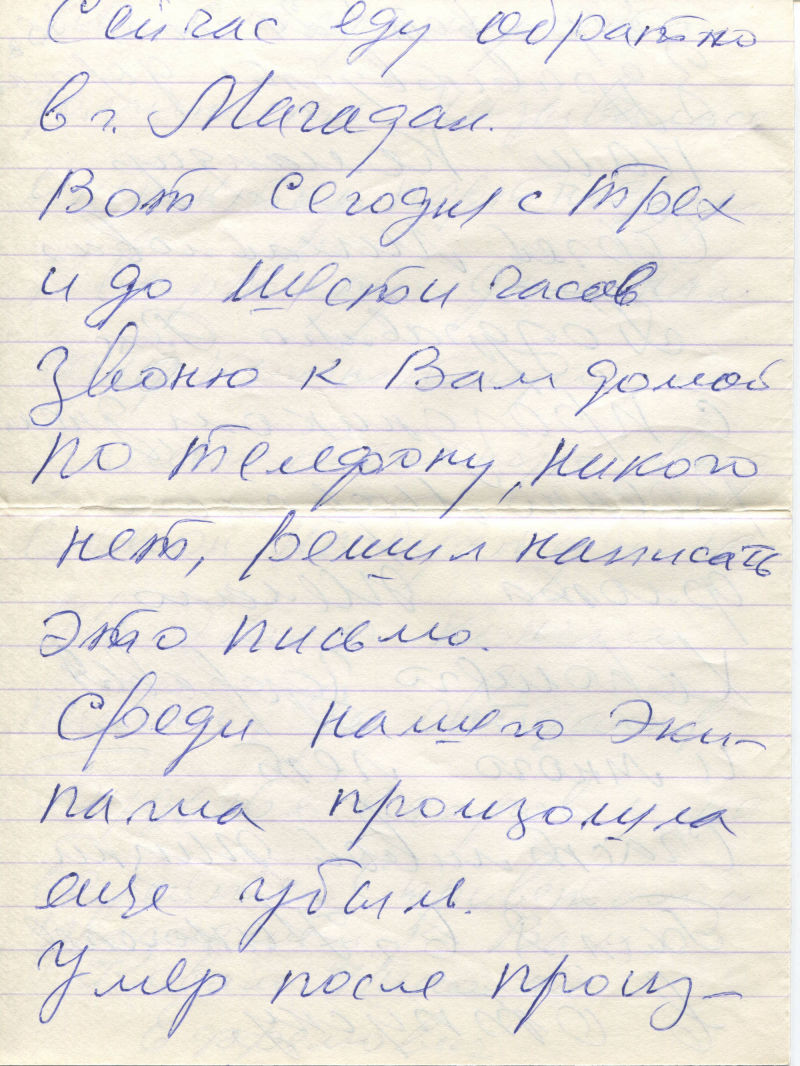 Сейчас еду обратно
в г. Магадан.
Вот сегодня с трех
и до шести часов
Звоню к Вам домой
по телефону, никого
нет, решил написать
это письмо.
Среди нашего эки-
пажа произошла
еще убыль.
Умер после произ-